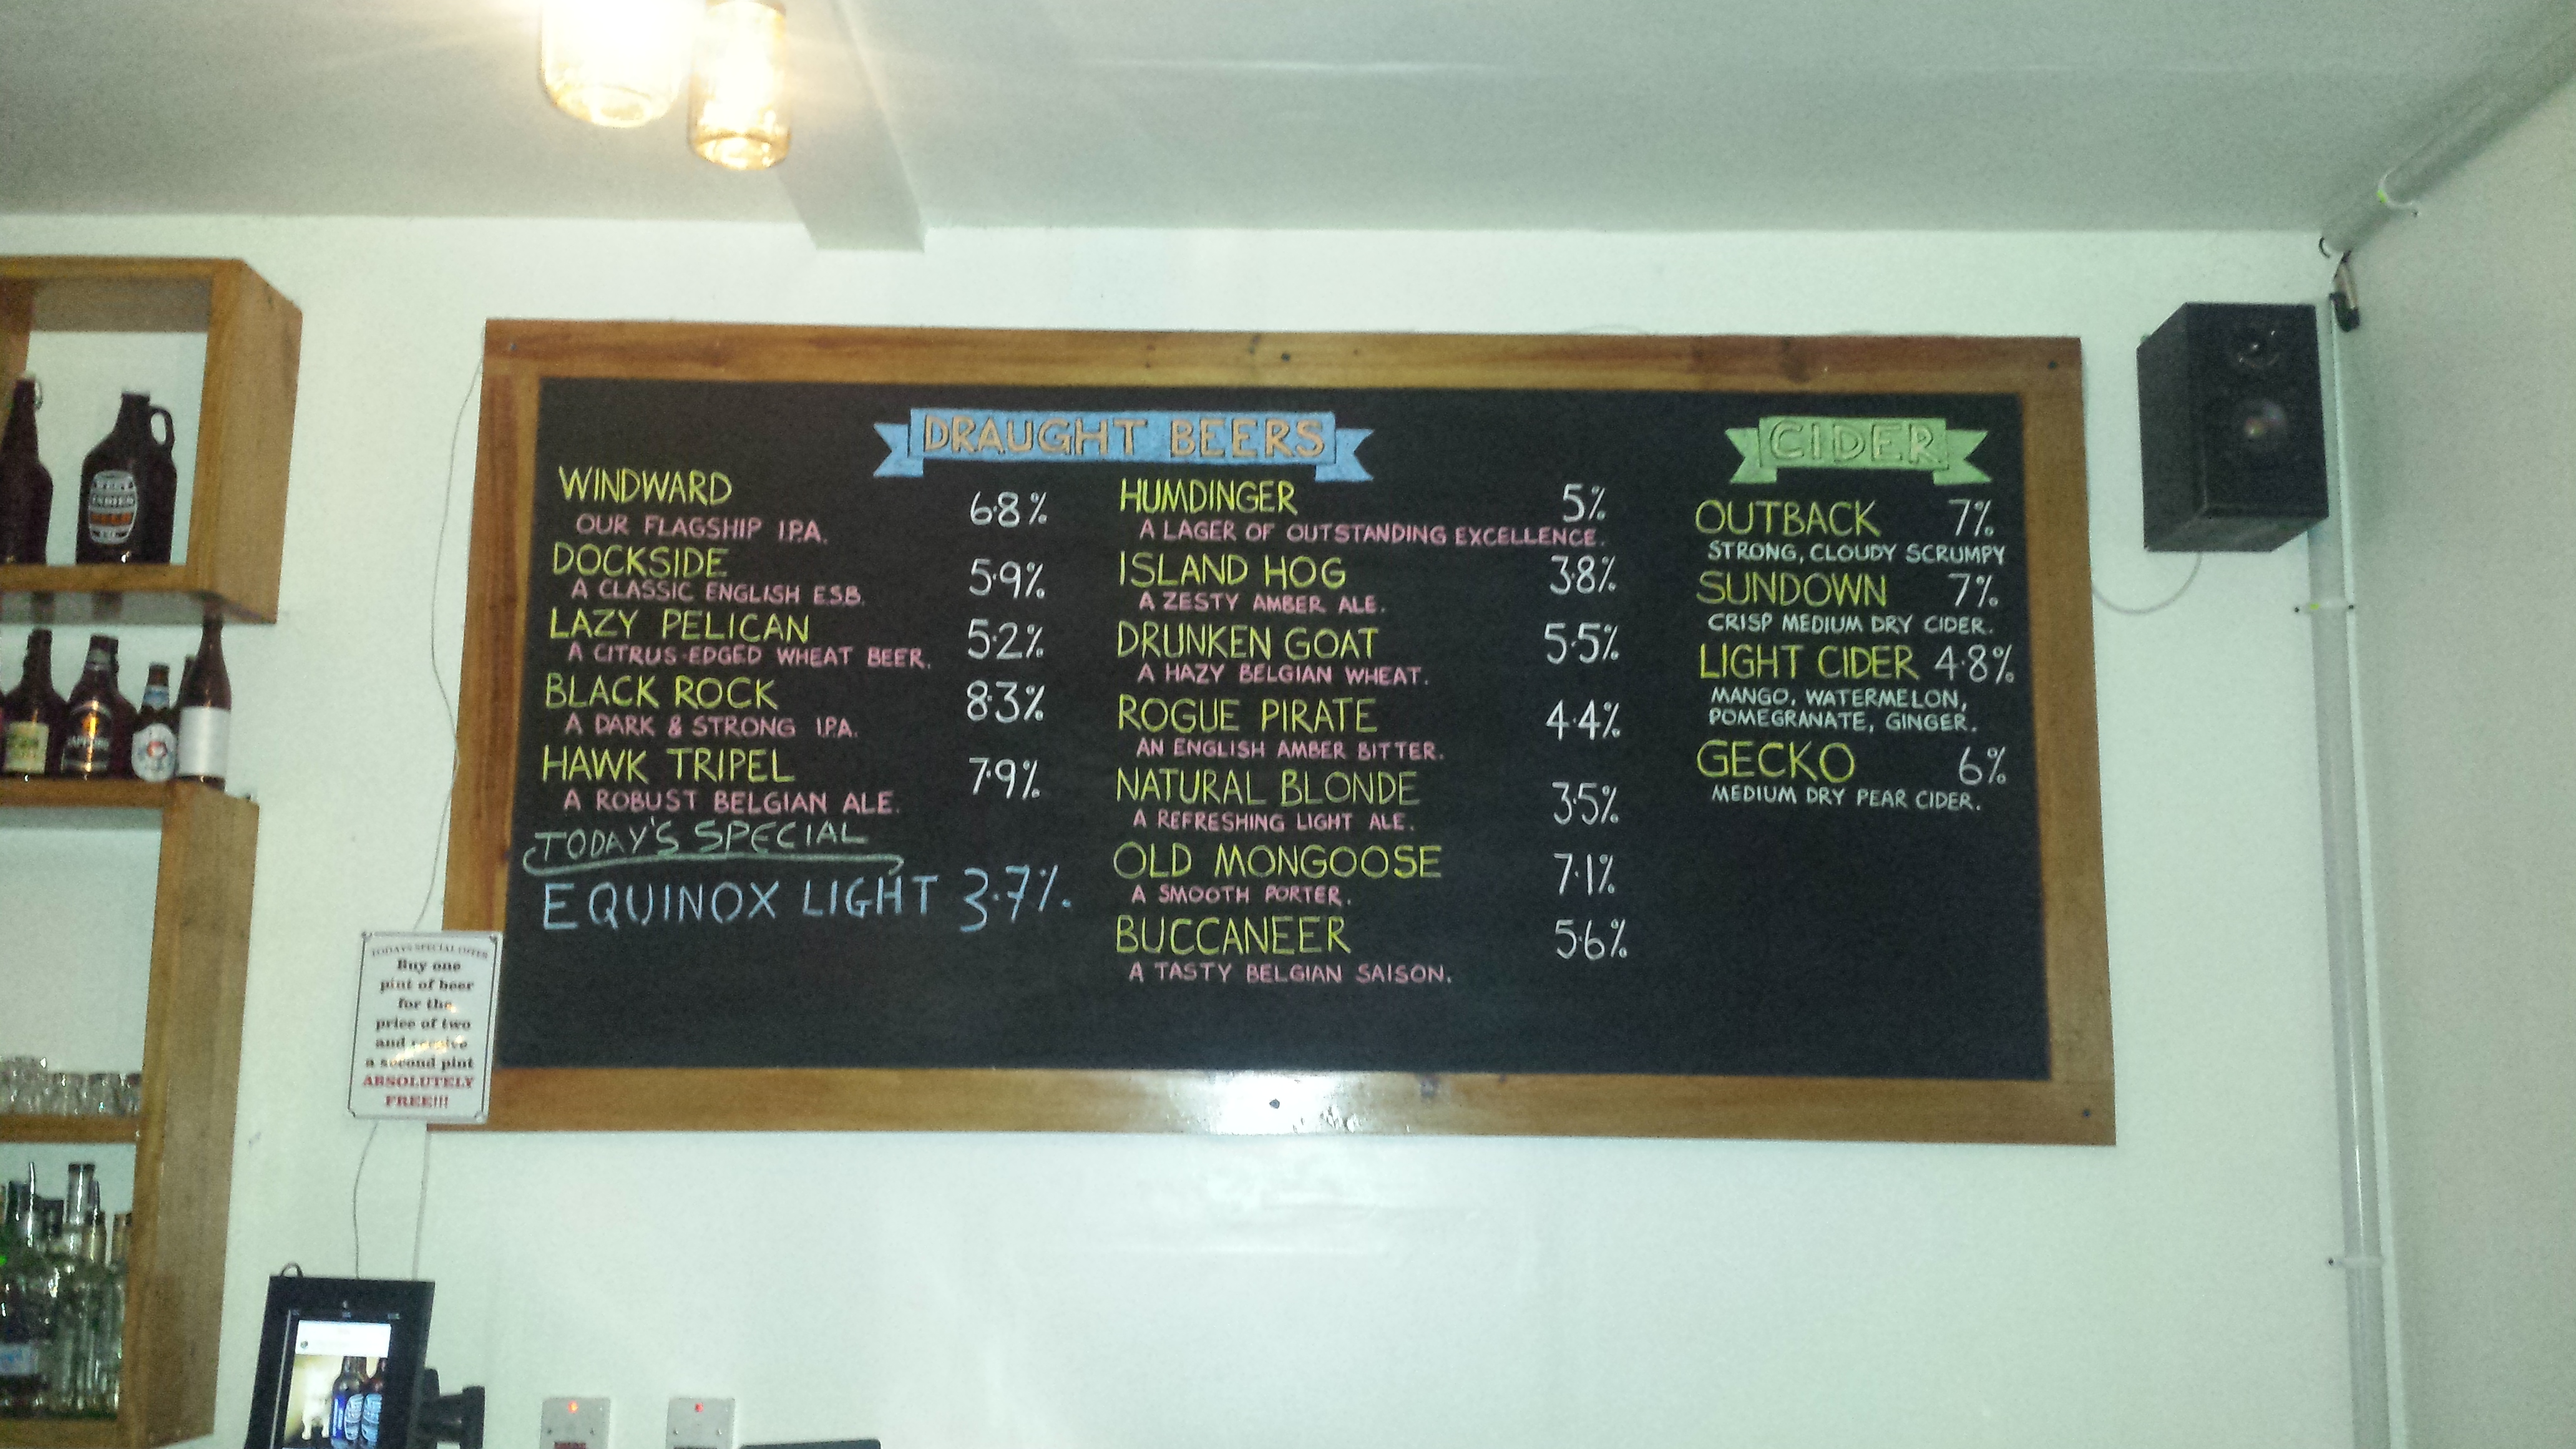 DRAUGHT BEERS
WINDWARD 6.8%
OUR FLAGSHIP I.P.A.
DOCKSIDE 5.9%
A CLASSIC ENGLISH E.S.B.
LAZY PELICAN 5.2%
A CITRUS-EDGED WHEAT BEER.
BLACK ROCK 8.3%
A DARK & STRONG I.P.A.
HAWK TRIPEL 7.9%
A ROBUST BELGIAN ALE.
TODAY'S SPECIAL
EQUINOX LIGHT 3.7%.
HUMDINGER 5%
A LAGER OF OUTSTANDING EXCELLENCE.
ISLAND HOG 3.8%
A ZESTY AMBER ALE.
DRUNKEN GOAT 5.5%
A HAZY BELGIAN WHEAT.
ROGUE PIRATE 4.4%
AN ENGLISH AMBER BITTER.
NATURAL BLONDE 3.5%
A REFRESHING LIGHT ALE.
OLD MONGOOSE 7.1%
A SMOOTH PORTER.
BUCCANEER 5.6%
A TASTY BELGIAN SAISON.
CIDER
OUTBACK 7%
STRONG, CLOUDY SCRUMPY
SUNDOWN 7%
CRISP MEDIUM DRY CIDER.
LIGHT CIDER 4.8%
MANGO, WATERMELON,
POMEGRANATE, GINGER.
GECKO 6%
MEDIUM DRY PEAR CIDER.
TODAYS SPECIAL OFFER
Buy one
pint of beer
for the
price of two
and receive
a second pint
ABSOLUTELY
FREE!!!
WEST
INDIES
SAPPORO